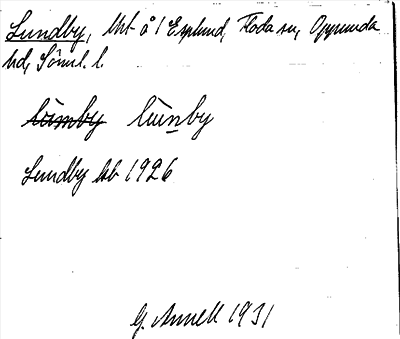 Lundby, Uht å 1 Esplund, Floda sn, Oppunda
hd, Söml. l.
lùmby lùnby
Lundby kb 1926
G. Annell 1931